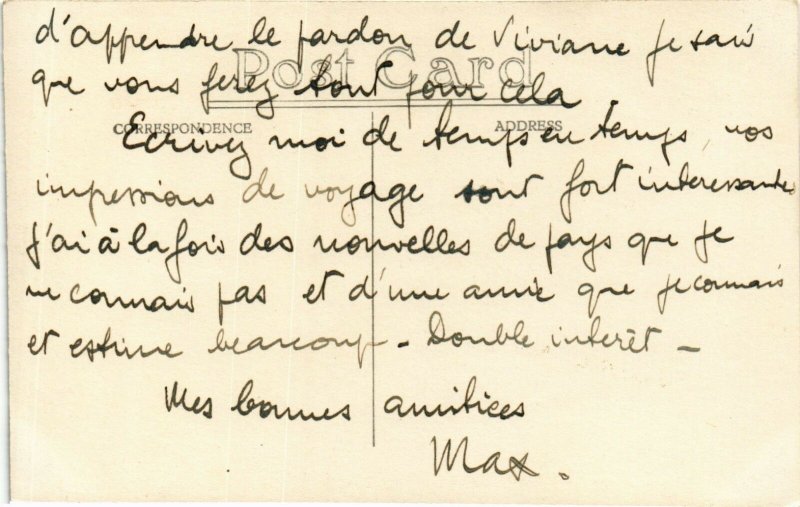 d'apprendre le pardon de Viviane je sais
Post Card
que vous ferez tout pour cela.
CORRESPONDENCE
ADDRESS
Ecrivez moi de temps en temps, vos
impressions de voyage sont fort interessantes
J'ai à la fois des nouvelles de pays que je
ne connais pas et d'une amie que je connais
et estime beaucoup - Double interêt -
Mes bonnes amitiées
Max.